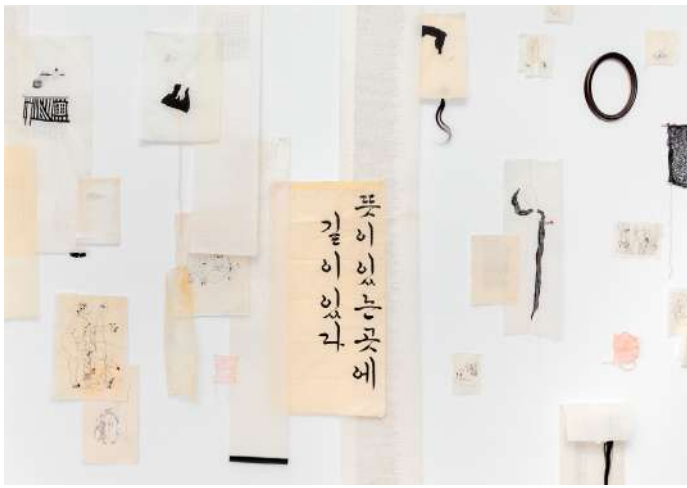 뜻이있는곳에
길이있다